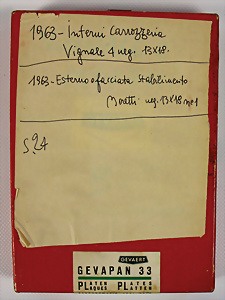 1963 - Interni Carrozzeria
Vignale 4 neg. 13x18.
1963 - Esterno e facciata Stabilimento
Moretti neg. 13x18 n° 1
GEVAERT
GEVAPAN 33
PLATEN PLATES
PLAQUES PLATTEN